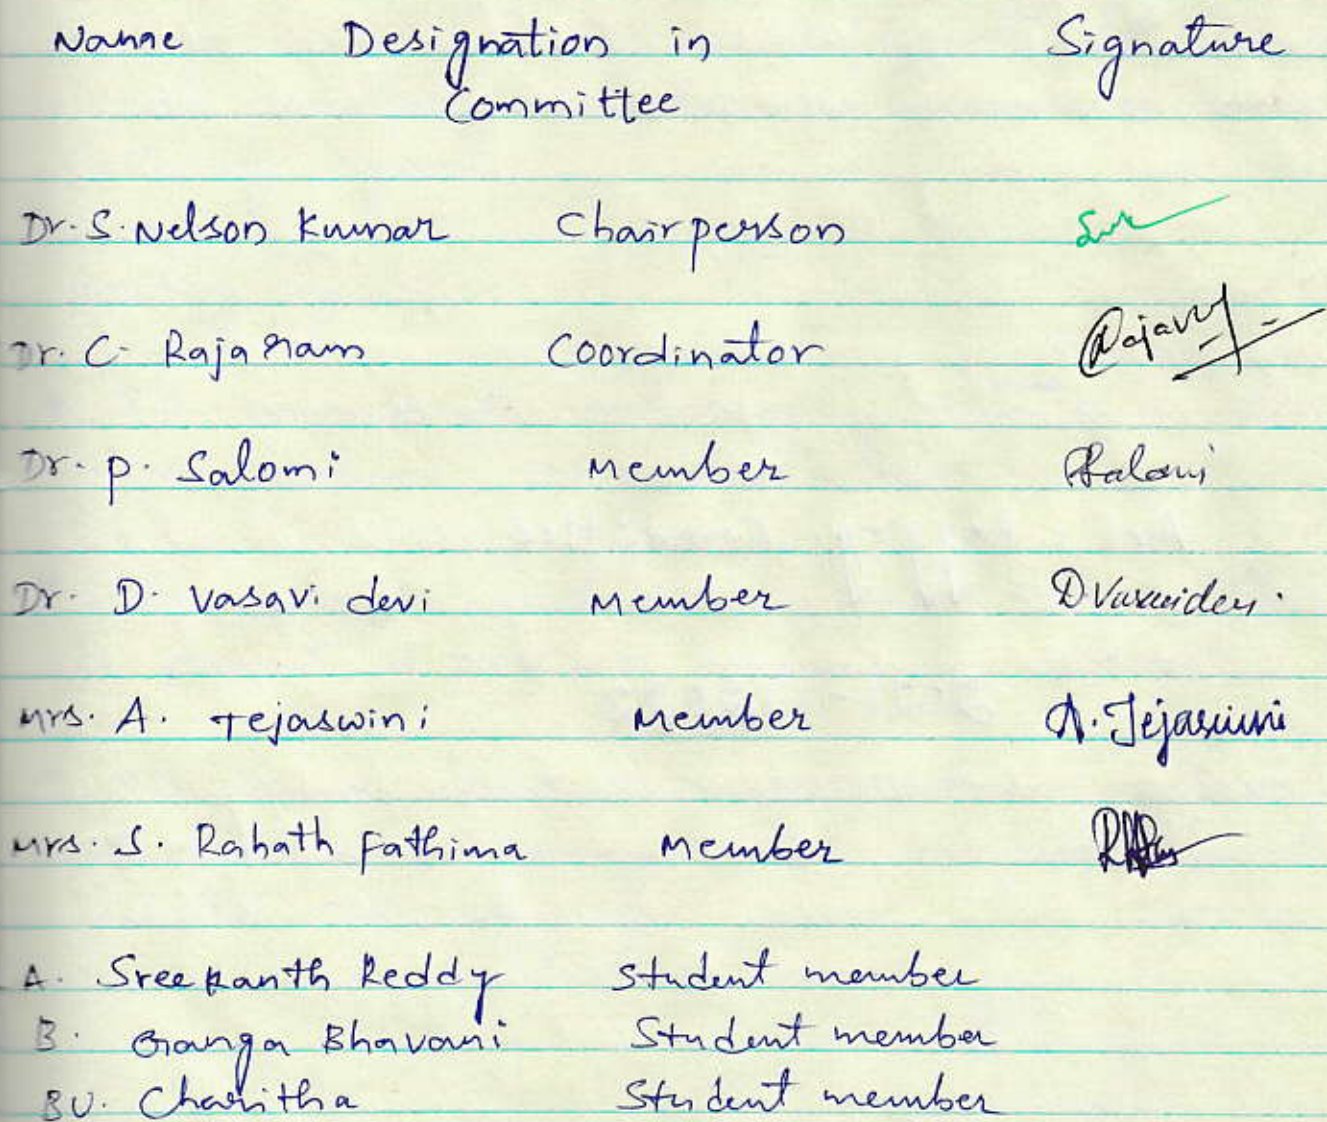 Name Designation in Signature
Committee
Dr. S. Nelson Kumar Chairperson
Dr. C. Rajaram Coordinator
Dr. P. Salomi Member PSalomi
Dr. D. Vasavi devi Member D Vasavidevi.
Mrs. A. Tejaswini Member A. Tejaswini
Mrs. S. Rahath Fathima Member
A. Sreekanth Reddy Student member
B. Ganga Bhavani Student member
BV. Charitha Student member